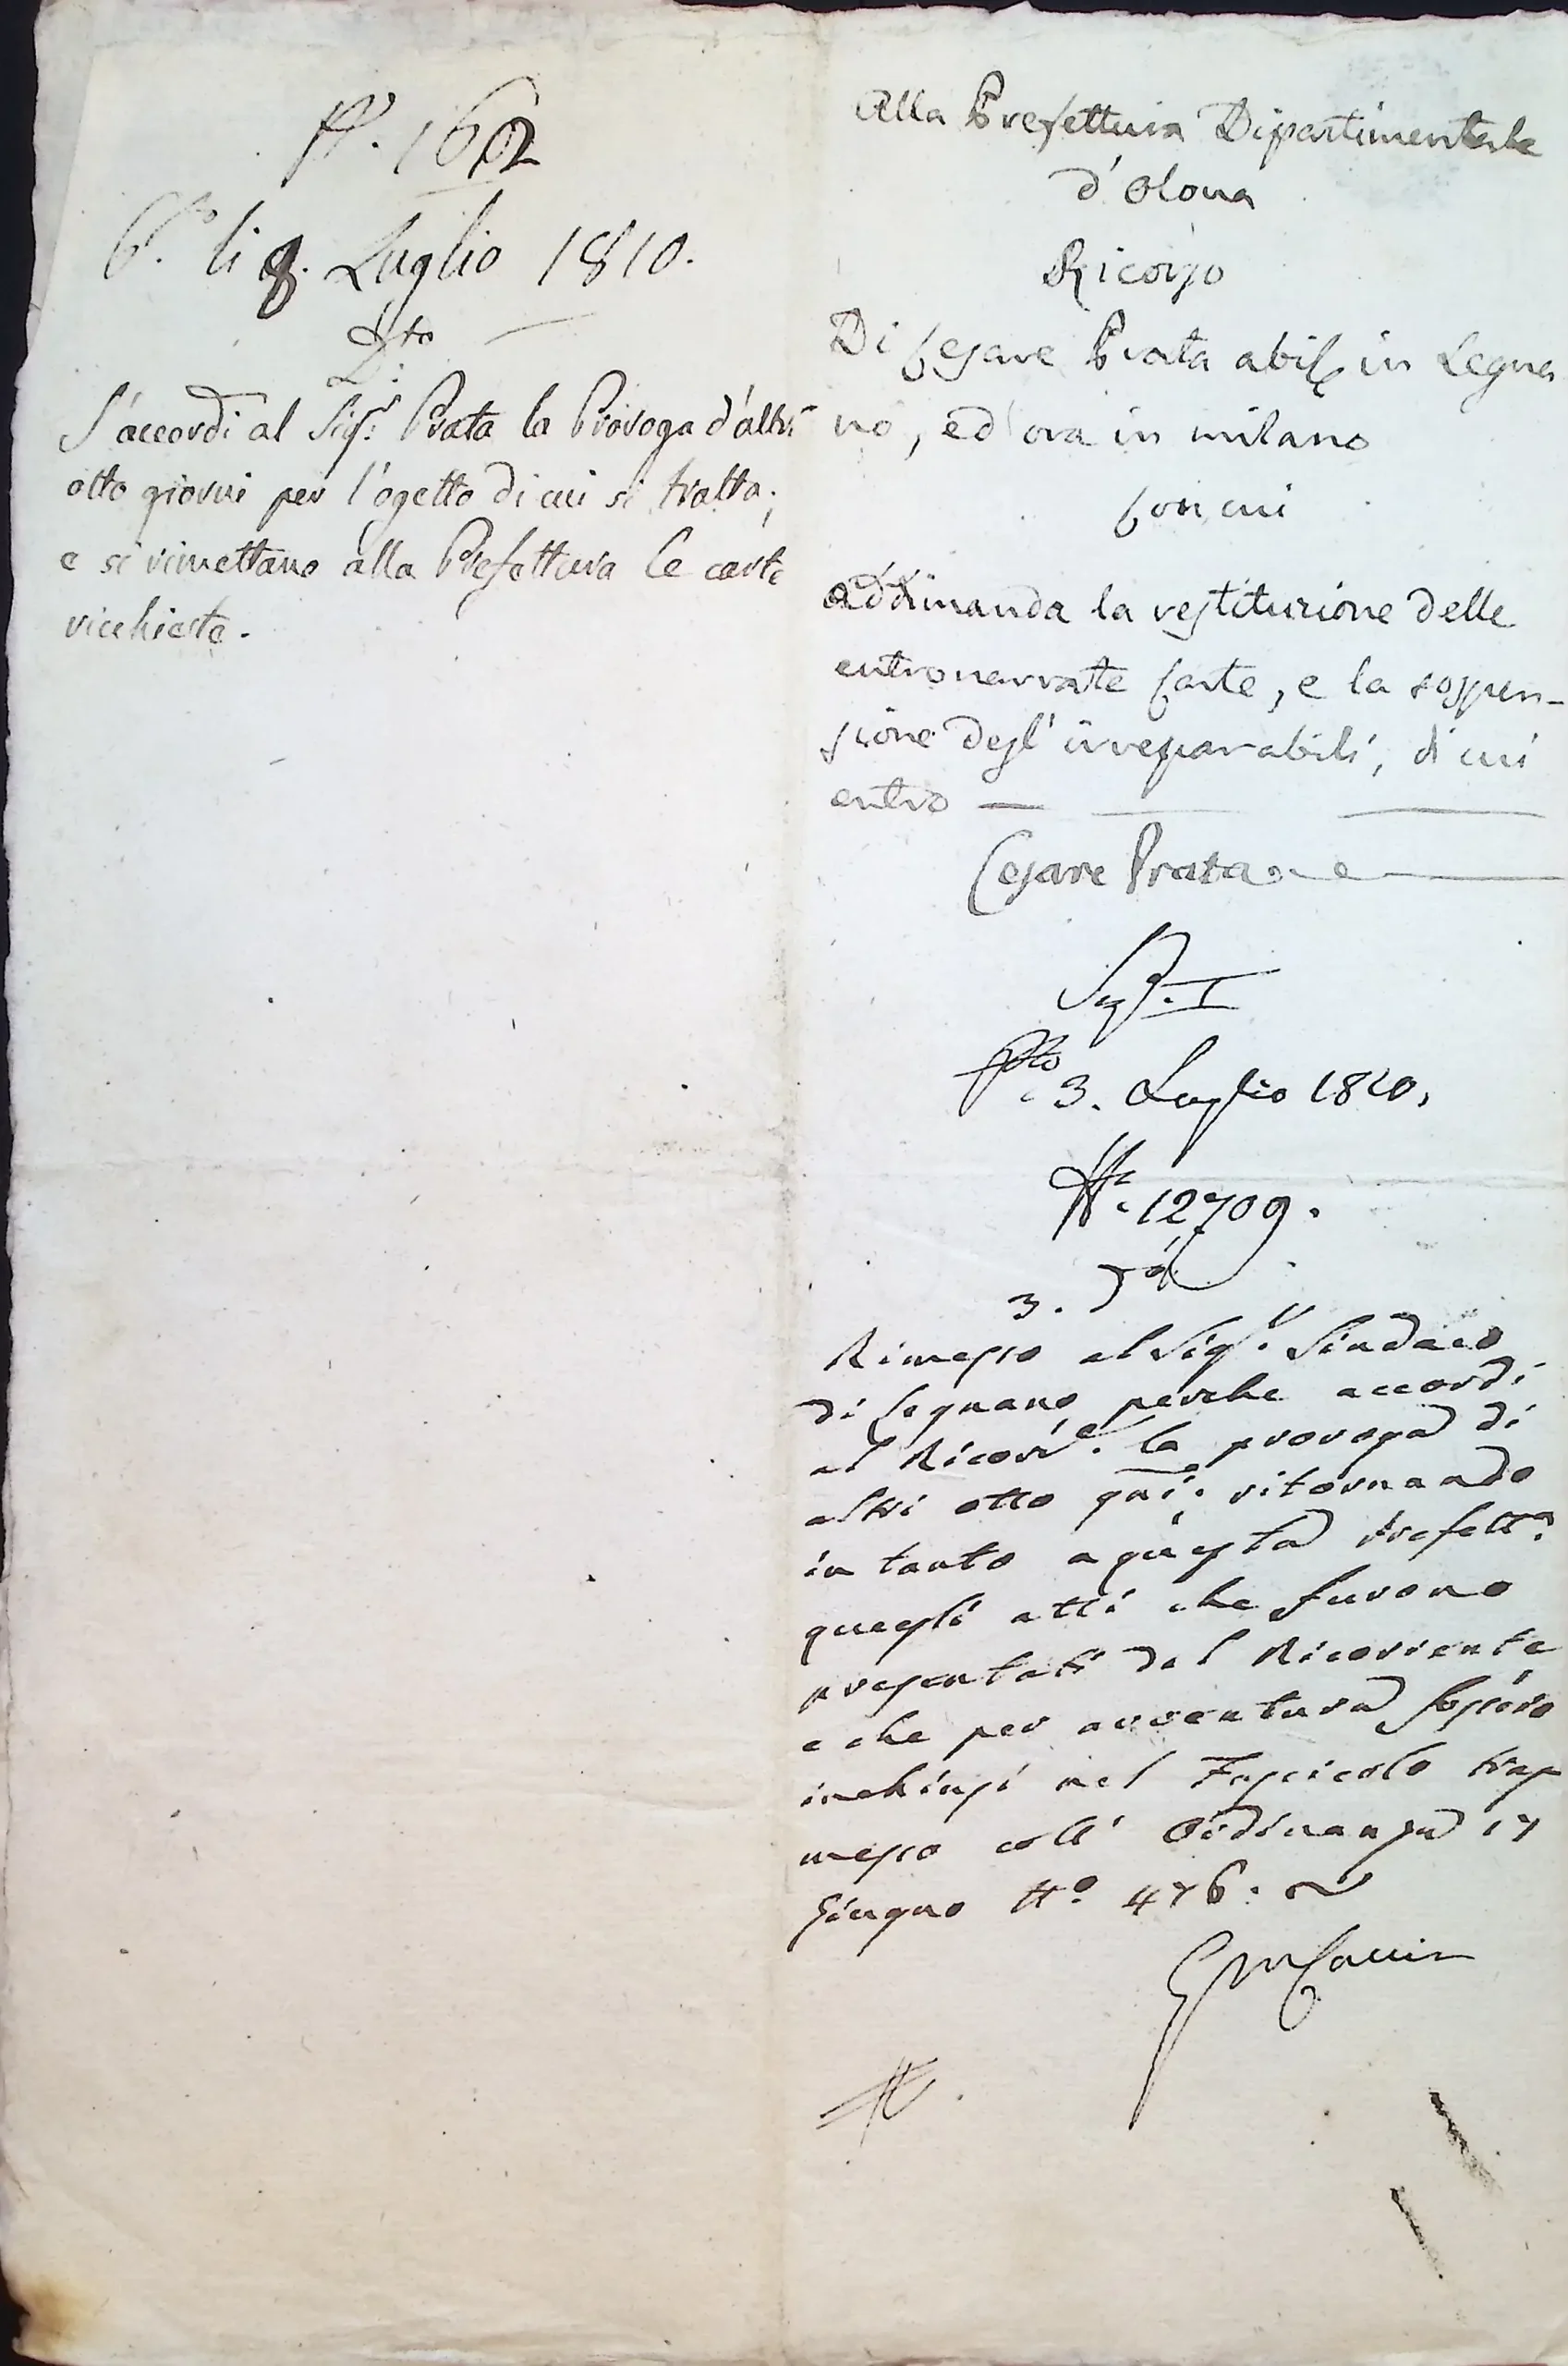 N. 162
li 8. Luglio 1810.
S'accordi al Sig.r Prata la Proroga d'altri
otto giorni per l'ogetto di cui si tratta;
e si rimettano alla Prefettura le carte
richieste.
Alla Prefettura Dipartimentale
d'Olona
Ricorso
Di Cesare Prata abit.e in Legna
no, ed ora in milano
Con cui
addimanda la restituzione delle
entronarrate Carte, e la sospen-
sione degl'irreparabili, di cui
entro
Cesare Prata
Sez. I
P.to 3. Luglio 1810.
N.o 12709.
3. d.o
Rimesso al Sig.r Sindaco
di Legnano perche accordi
al Ricorr.e la proroga di
altri otto gni: ritornando
in tanto a questa Prefett.a
quegli atti che furono
presentati dal Ricorrente
e che per avventura fossero
inchiusi nel Fascicolo tras
messo coll' Ordinanza 17
Giugno N.o 476.